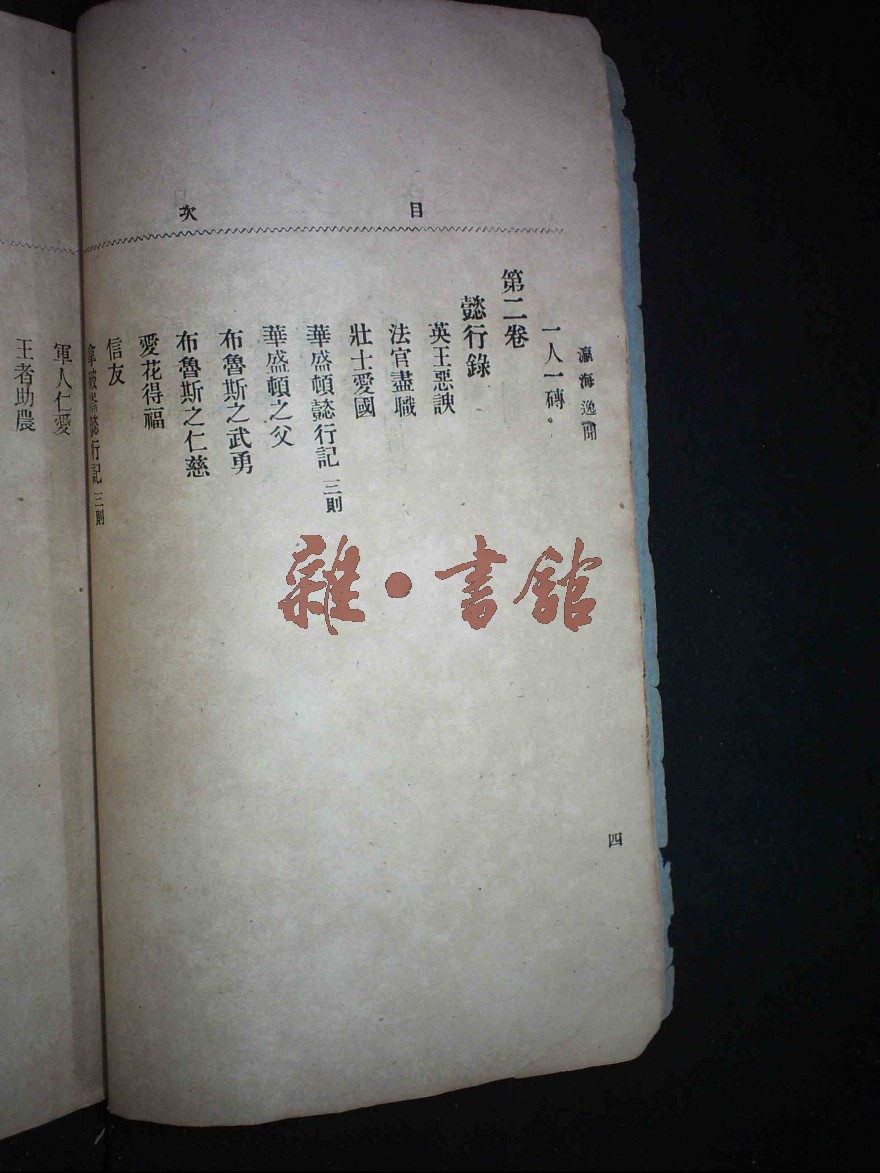 目次
瀛海逸聞
四
一人一磚
第二卷
懿行錄
英王惡諛
法官盡職
壯士愛國
華盛頓懿行記 三則
華盛頓之父
布魯斯之武勇
布魯斯之仁慈
愛花得福
信友
拿破崙懿行記 三則
軍人仁愛
王者助農
雜·書館